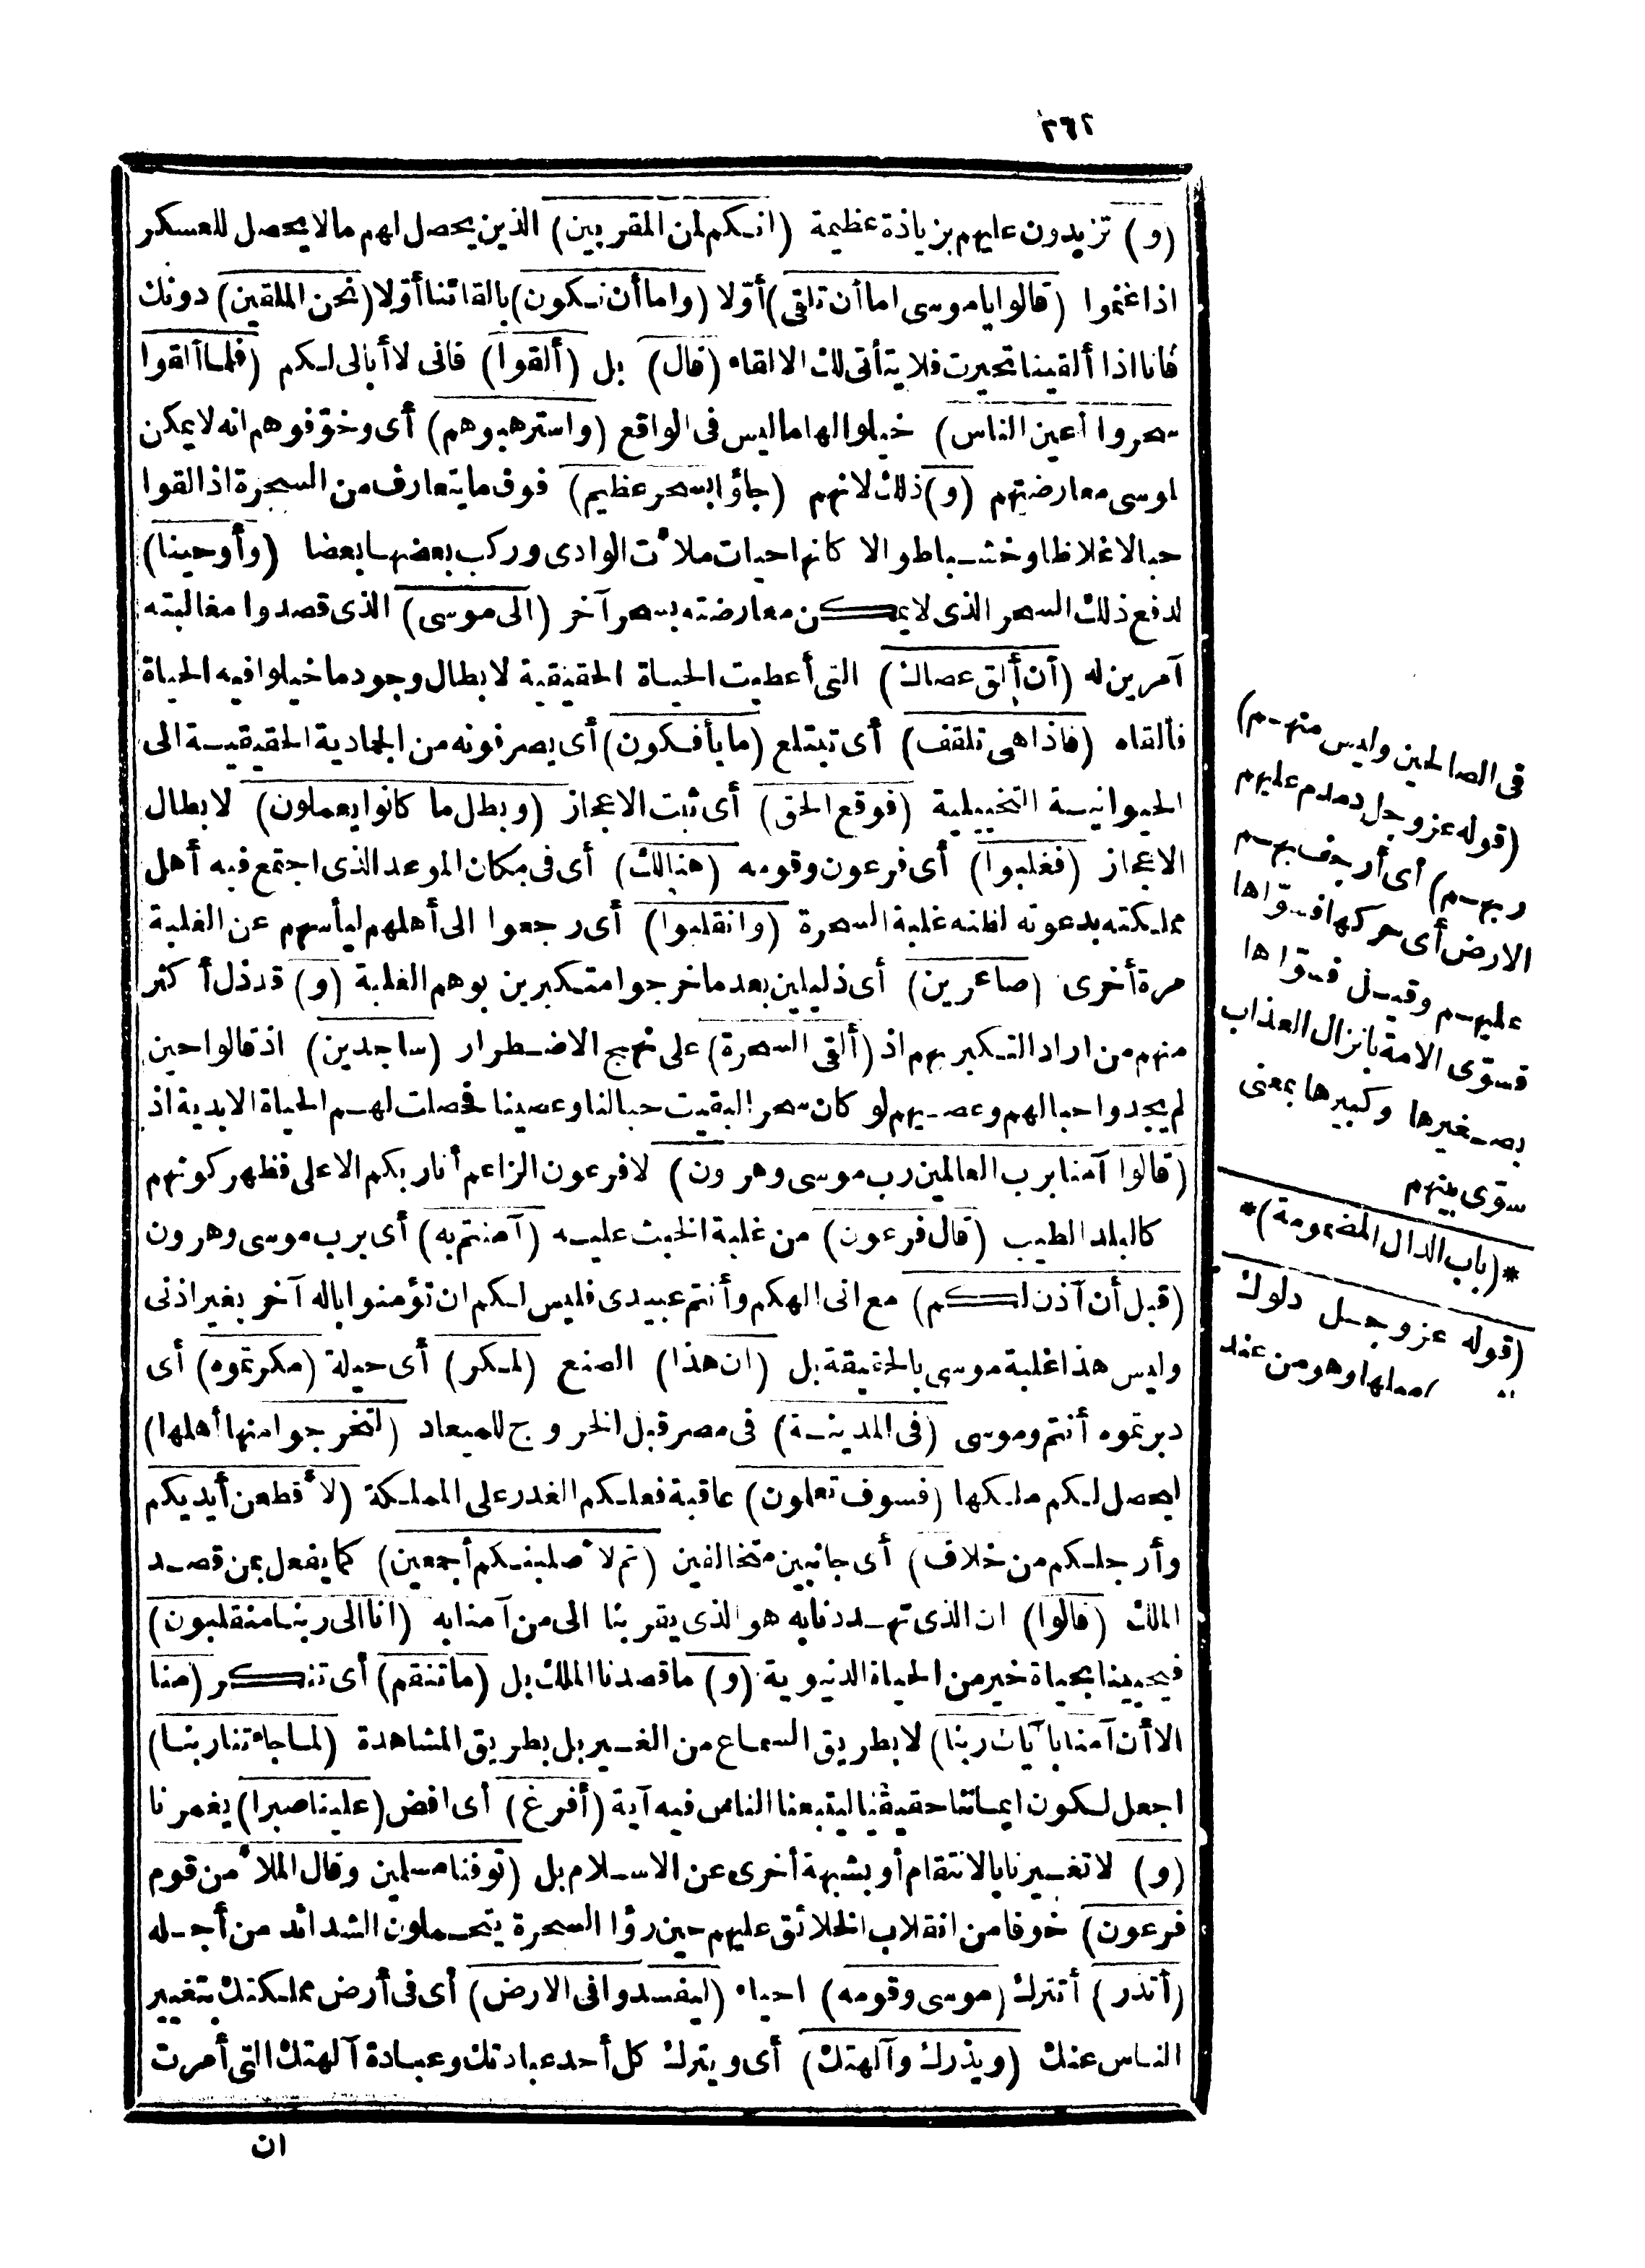 ٢٦٢
(و) تزيدون عليهم بزيادة عظيمة (انكم لمن المقربين) الذين يحصل لهم ما لا يحصل للعسكر
اذا غنموا (قالوا يا موسى اما أن تلقى) أوّلا (واما أن نكون) بالقائنا أوّلا (نحن الملقين) دونك
فانا اذا ألقينا تحيرت فلا يتأتى لك الالقاء (قال) بل (ألقوا) فانى لا أبالى لكم (فلما ألقوا
سحروا أعين الناس) خيلوا لها ما ليس فى الواقع (واسترهبوهم) أى وخوّفوهم انه لا يمكن
لموسى معارضتهم (و) ذلك لانهم (جاؤا بسحر عظيم) فوق ما يتعارف من السحرة اذ القوا
حبالا غلاظا وخشباطوالا كانها حيات ملأت الوادى وركب بعضها بعضا (وأوحينا)
لدفع ذلك السحر الذى لا يمكن معارضته بسحر آخر (الى موسى) الذى قصدوا مغالبته
آمرين له (أن ألق عصاك) التى أعطيت الحياة الحقيقية لابطال وجود ما خيلوا فيه الحياة
فألقاه (فاذا هى تلقف) أى تبتلع (ما يأفكون) أى يصرفونه من الجمادية الحقيقيسة الى
الحيوانيسة التخييلية (فوقع الحق) أى ثبت الاعجاز (وبطل ما كانوا يعملون) لابطال
الاعجاز (فغلبوا) أى فرعون وقومه (هنالك) أى فى مكان الموعد الذى اجتمع فيه أهل
مملكته بدعوته لظنه غلبة السحرة (وانقلبوا) أى رجعوا الى أهلهم ليأسهم عن الغلبة
مرة أخرى (صاغرين) أى ذليلين بعد ما خرجوا متكبرين بوهم الغلبة (و) قد ذل أكثر
منهم من اراد التكبر بهم اذ (ألقى السحرة) على نهج الاضطرار (ساجدين) اذ قالوا حين
لم يجدوا حبالهم وعصيهم لو كان سحرا لبقيت حبالنا وعصينا فحصلت لهم الحياة الابدية اذ
(قالوا آمنا برب العالمين رب موسى وهرون) لا فرعون الزاعم أنا ربكم الاعلى فظهر كونهم
كالبلد الطيب (قال فرعون) من غلبة الخبث عليه (آمنتم به) أى برب موسى وهرون
(قبل أن آذن لكم) مع انى الهكم وأنتم عبيدى فليس لكم ان تؤمنوا باله آخر بغير اذنى
وليس هذا غلبة موسى بالحقيقة بل (ان هذا) الصنع (لمكر) أى حيلة (مكرتموه) أى
دبرتموه أنتم وموسى (فى المدينة) فى مصر قبل الخروج للميعاد (لتخرجوا منها أهلها)
ليحصل لكم ملكها (فسوف تعلمون) عاقبة فعلكم الغدر على المملكة (لأقطعن أيديكم
وأرجلكم من خلاف) أى جانبين متخالفين (ثم لأصلبنكم أجمعين) كما يفعل بمن قصد
الملك (قالوا) ان الذى تهددنا به هو الذى يقربنا الى من آمنا به (انا الى ربنا منقلبون)
فيحيينا بحياة خير من الحياة الدنيوية (و) ما قصدنا الملك بل (ما تنقم) أى تنكر (منا
الا أن آمنا بآيات ربنا) لا بطريق السماع من الغير بل بطريق المشاهدة (لما جاءتنا ربنا)
اجعل لكون ايماننا حقيقيا ليتبعنا الناس فيه آية (أفرغ) أى افض (علينا صبرا) يغمرنا
(و) لا تغيرنا بالانتقام أو بشبهة أخرى عن الاسلام بل (توفنا مسلمين وقال الملأ من قوم
فرعون) خوفا من انقلاب الخلائق عليهم حين رؤا السحرة يتحملون الشدائد من أجله
(أتذر) أتترك (موسى وقومه) احياء (ليفسدوا فى الارض) أى فى أرض مملكتك بتغيير
الناس عنك (ويذرك وآلهتك) أى ويترك كل أحد عبادتك وعبادة آلهتك التى أمرت
ان
فى الصالحين وليس منهم)
(قوله عز وجل دمدم عليهم
ربهم) أى أرجف بهم
الارض أى حركها فسوّاها
عليهم وقيل فسوّاها
فسوّى الامة بانزال العذاب
بصغيرها وكبيرها بمعنى
سوّى بينهم
*(باب الدال المضمومة)*
(قوله عز وجل دلوك
ميلها وهو من عند